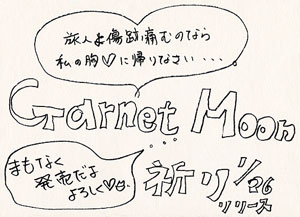 旅人よ傷跡痛むのなら
私の胸♡に帰りなさい・・・。
Garnet Moon
・・・
祈り 1/26
リリース
まもなく
発売だよ
よろしく♡